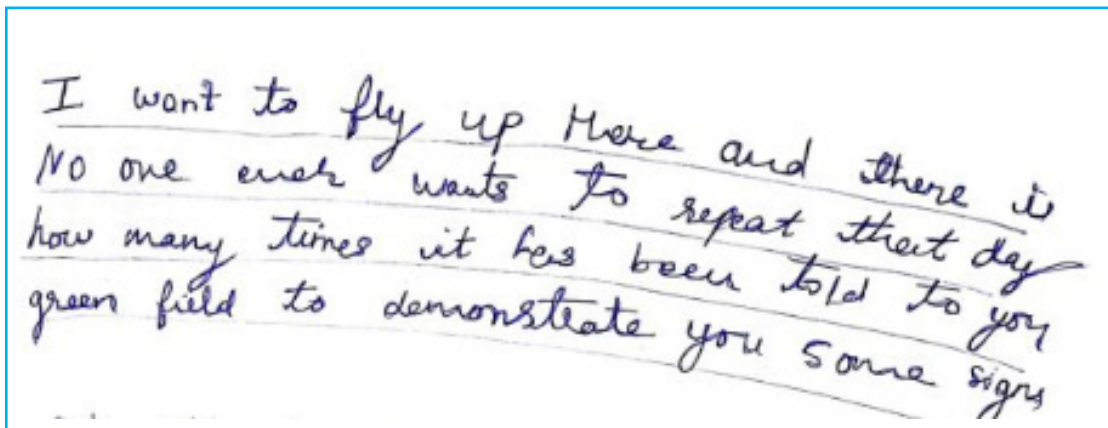 I want to fly up there and there is
No one ever wants to repeat that day
how many times it has been told to you
green field to demonstrate you some signs